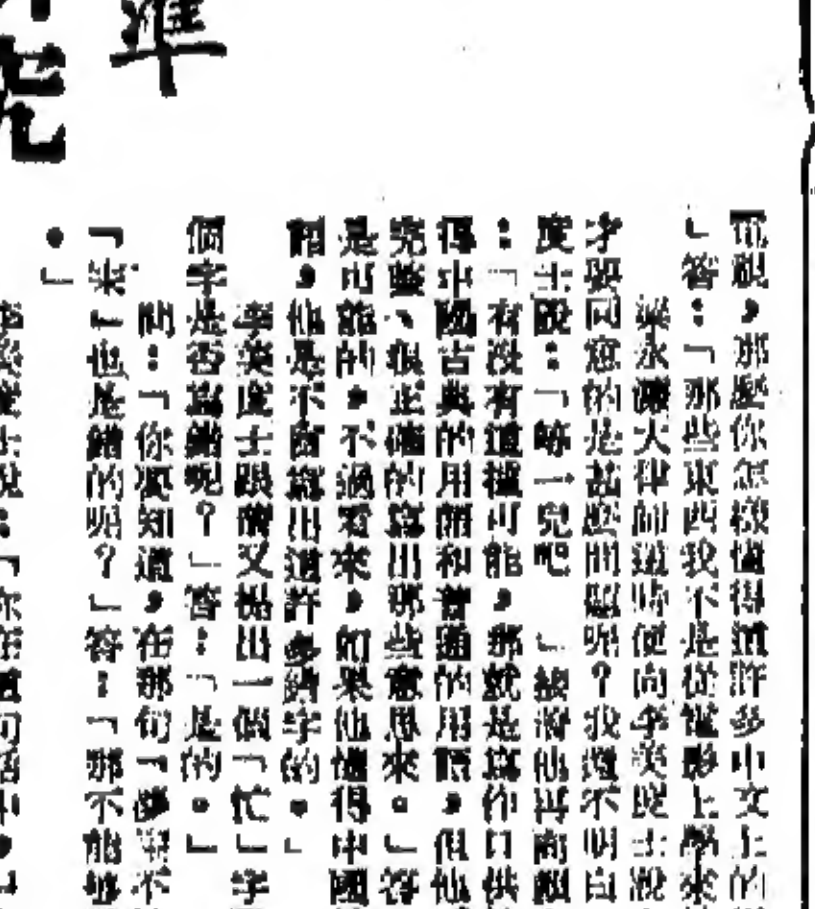 準
電視，那麼你怎樣懂得這許多中文上的
」答：「那些東西我不是從電影上學來
梁永濂大律師這時便向李美度士說
才要同意的是甚麼問題呢？我還不明白
度士說：「等一兒吧」接着他再向
：「有沒有這種可能，那就是寫作口供
得中國古典的用語和普通的用語，但他
完整、很正確的寫出那些意思來。」答
是可能的，不過看來，如果他懂得中國
話，他是不會寫出這許多錯字的。」
李美度士跟着又提出一個「忙」字
個字是否寫錯呢？」答：「是的。」
問：「你要知道，在那句「
「柒」也是錯的呢？」答：「那不能夠
。」
李美度士說：「你在這句話中，